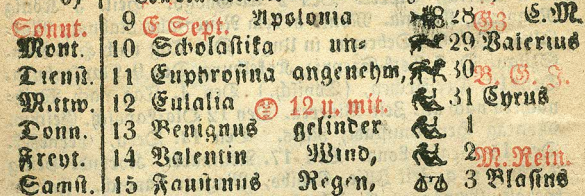 Sonnt. 9 E Sept. Apolonia 28 G3 E.M.
Mont. 10 Scholaſtika un⸗ 29 Valerius
Dienſt. 11 Euphroſina angenehm, 30 B. G. J.
Mittw. 12 Eulalia 12 u. mit. 31 Cyrus
Donn. 13 Benignus gelinder 1
Freyt. 14 Valentin Wind, 2 M. Rein.
Samſt. 15 Fauſtinus Regen, 3 Blaſius